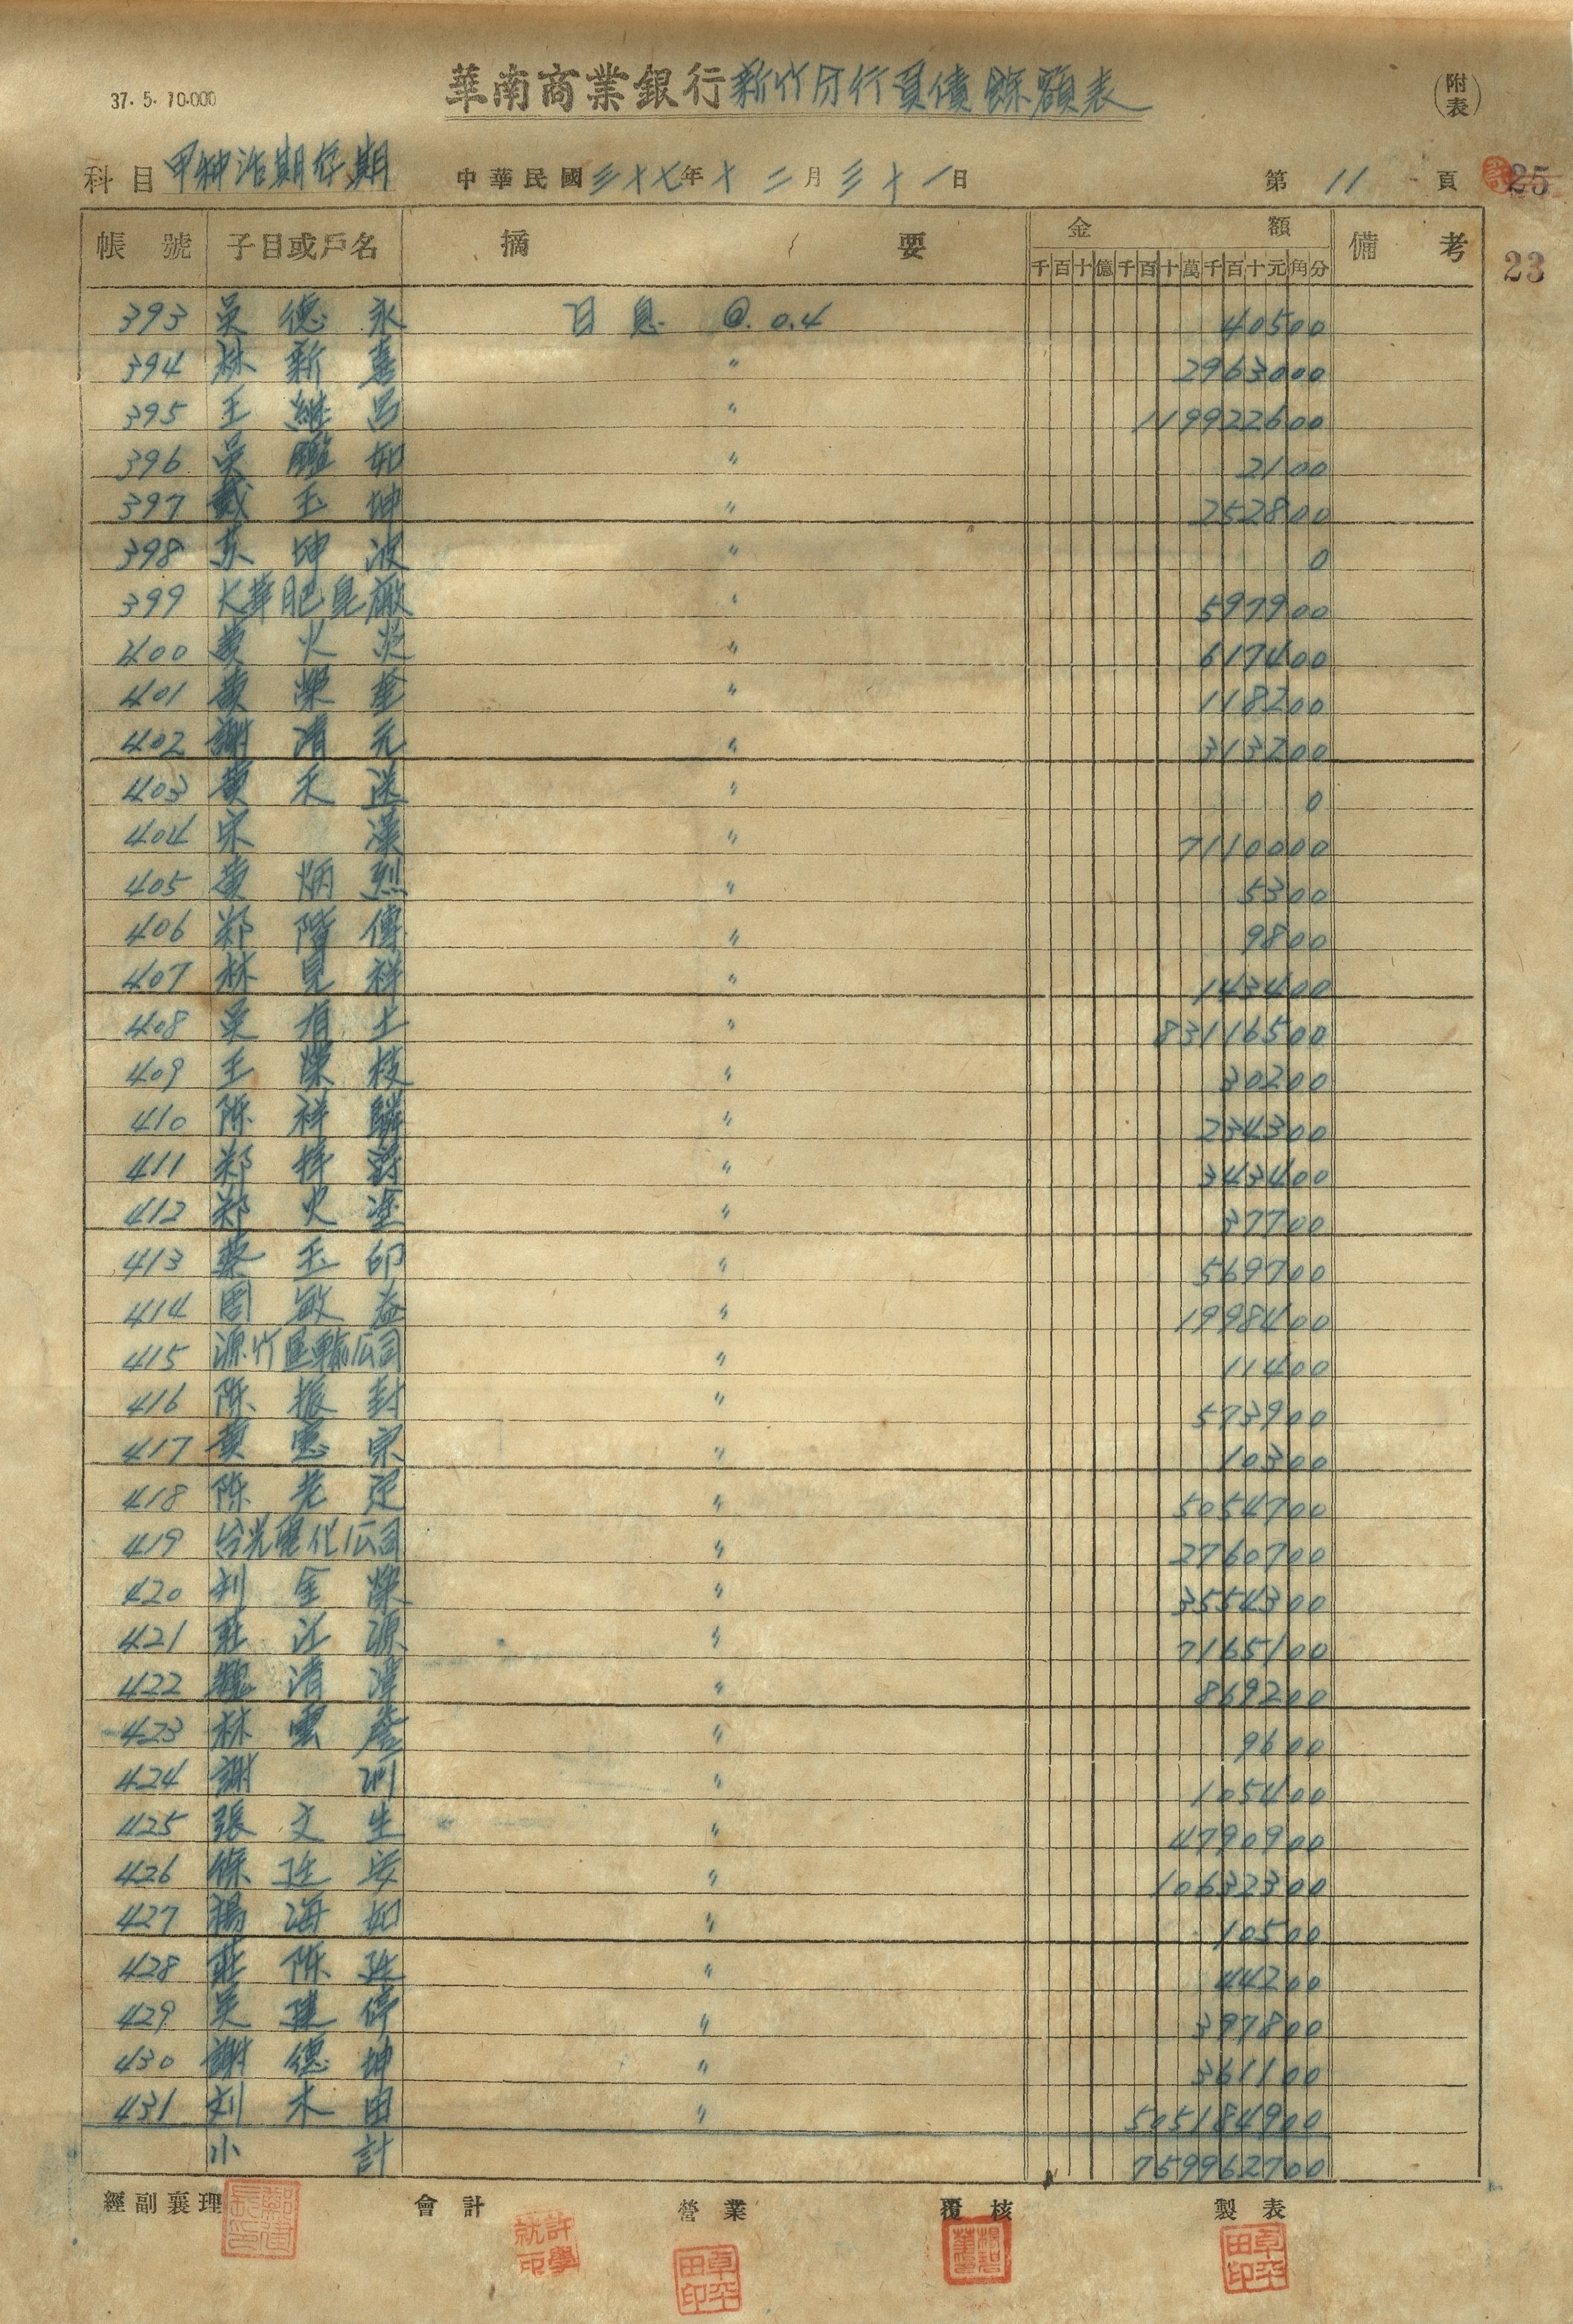 37. 5. 10.000
華南商業銀行新竹分行負債餘額表
(附表)
科目 甲种活期存期 中華民國三十七年十二月三十一日 第 11 頁 25
23
帳號 子目或戶名 摘要 金額 備考
千百十億千百十萬千百十元角分
393 吳德永 日息 @. 0.4 40500
394 林新喜 〃 2963000
395 王繼呂 〃 119922600
396 吳鑑如 〃 2100
397 戴玉坤 〃 252800
398 蘇坤波 〃 0
399 大華肥皂廠 〃 597900
400 黃火炎 〃 617400
401 黃榮奎 〃 118200
402 謝清元 〃 313200
403 黃禾送 〃 0
404 宋漢 〃 7110000
405 黃炳烈 〃 5300
406 鄭階傳 〃 9800
407 林見祥 〃 143400
408 吳有土 〃 83116500
409 王榮枝 〃 30200
410 陈祥麟 〃 234300
411 鄭 〃 343400
412 鄭火塗 〃 37700
413 蔡玉印 〃 569700
414 周敏益 〃 1998400
415 源竹運輸公司 〃 11400
416 陈振封 〃 573900
417 黃憲宗 〃 10300
418 陈老定 〃 5054700
419 台光電化公司 〃 2760700
420 刘金榮 〃 3554300
421 莊江源 〃 7165100
422 魏清潭 〃 869200
423 林雲 〃 9600
424 謝訓 〃 105400
425 張文生 〃 4790900
426 徐廷安 〃 10632300
427 楊海如 〃 10500
428 莊陈 〃 44200
429 吳建停 〃 397800
430 謝德坤 〃 361100
431 刘木田 〃 505184900
小計 759962700
經副襄理 會計 營業 覆核 製表
許學就印
卓平田印
卓平田印